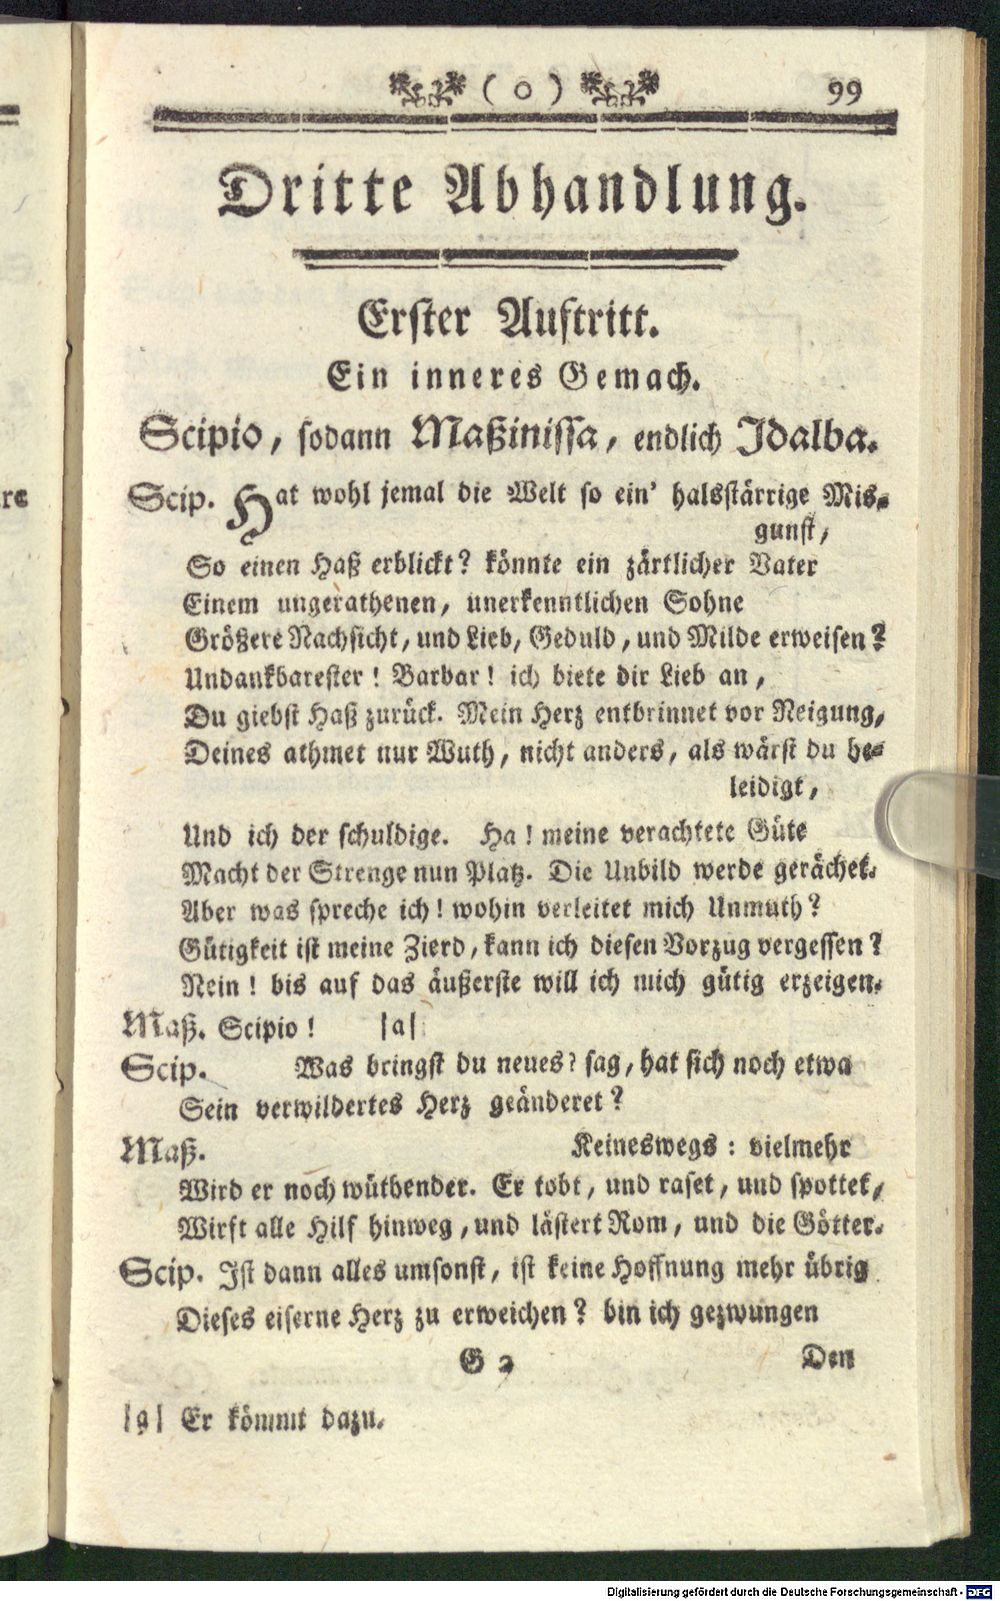 ( o ) 99
Dritte Abhandlung.
Erster Auftritt.
Ein inneres Gemach.
Scipio, sodann Maßinissa, endlich Idalba.
Scip. Hat wohl jemal die Welt so ein' halsstärrige Mis-
gunst,
So einen Haß erblickt? könnte ein zärtlicher Vater
Einem ungerathenen, unerkenntlichen Sohne
Größere Nachsicht, und Lieb, Geduld, und Milde erweisen?
Undankbarester! Barbar! ich biete dir Lieb an,
Du giebst Haß zurück. Mein Herz entbrinnet vor Neigung,
Deines athmet nur Wuth, nicht anders, als wärst du be-
leidigt,
Und ich der schuldige. Ha! meine verachtete Güte
Macht der Strenge nun Platz. Die Unbild werde gerächet.
Aber was spreche ich! wohin verleitet mich Unmuth?
Gütigkeit ist meine Zierd, kann ich diesen Vorzug vergessen?
Nein! bis auf das äußerste will ich mich gütig erzeigen.
Maß. Scipio! |a|
Scip. Was bringst du neues? sag, hat sich noch etwa
Sein verwildertes Herz geänderet?
Maß. Keineswegs: vielmehr
Wird er noch wüthender. Er tobt, und raset, und spottet,
Wirft alle Hilf hinweg, und lästert Rom, und die Götter.
Scip. Ist dann alles umsonst, ist keine Hoffnung mehr übrig
Dieses eiserne Herz zu erweichen? bin ich gezwungen
G 2 Den
|a| Er kömmt dazu.
re
Digitalisierung gefördert durch die Deutsche Forschungsgemeinschaft - DFG